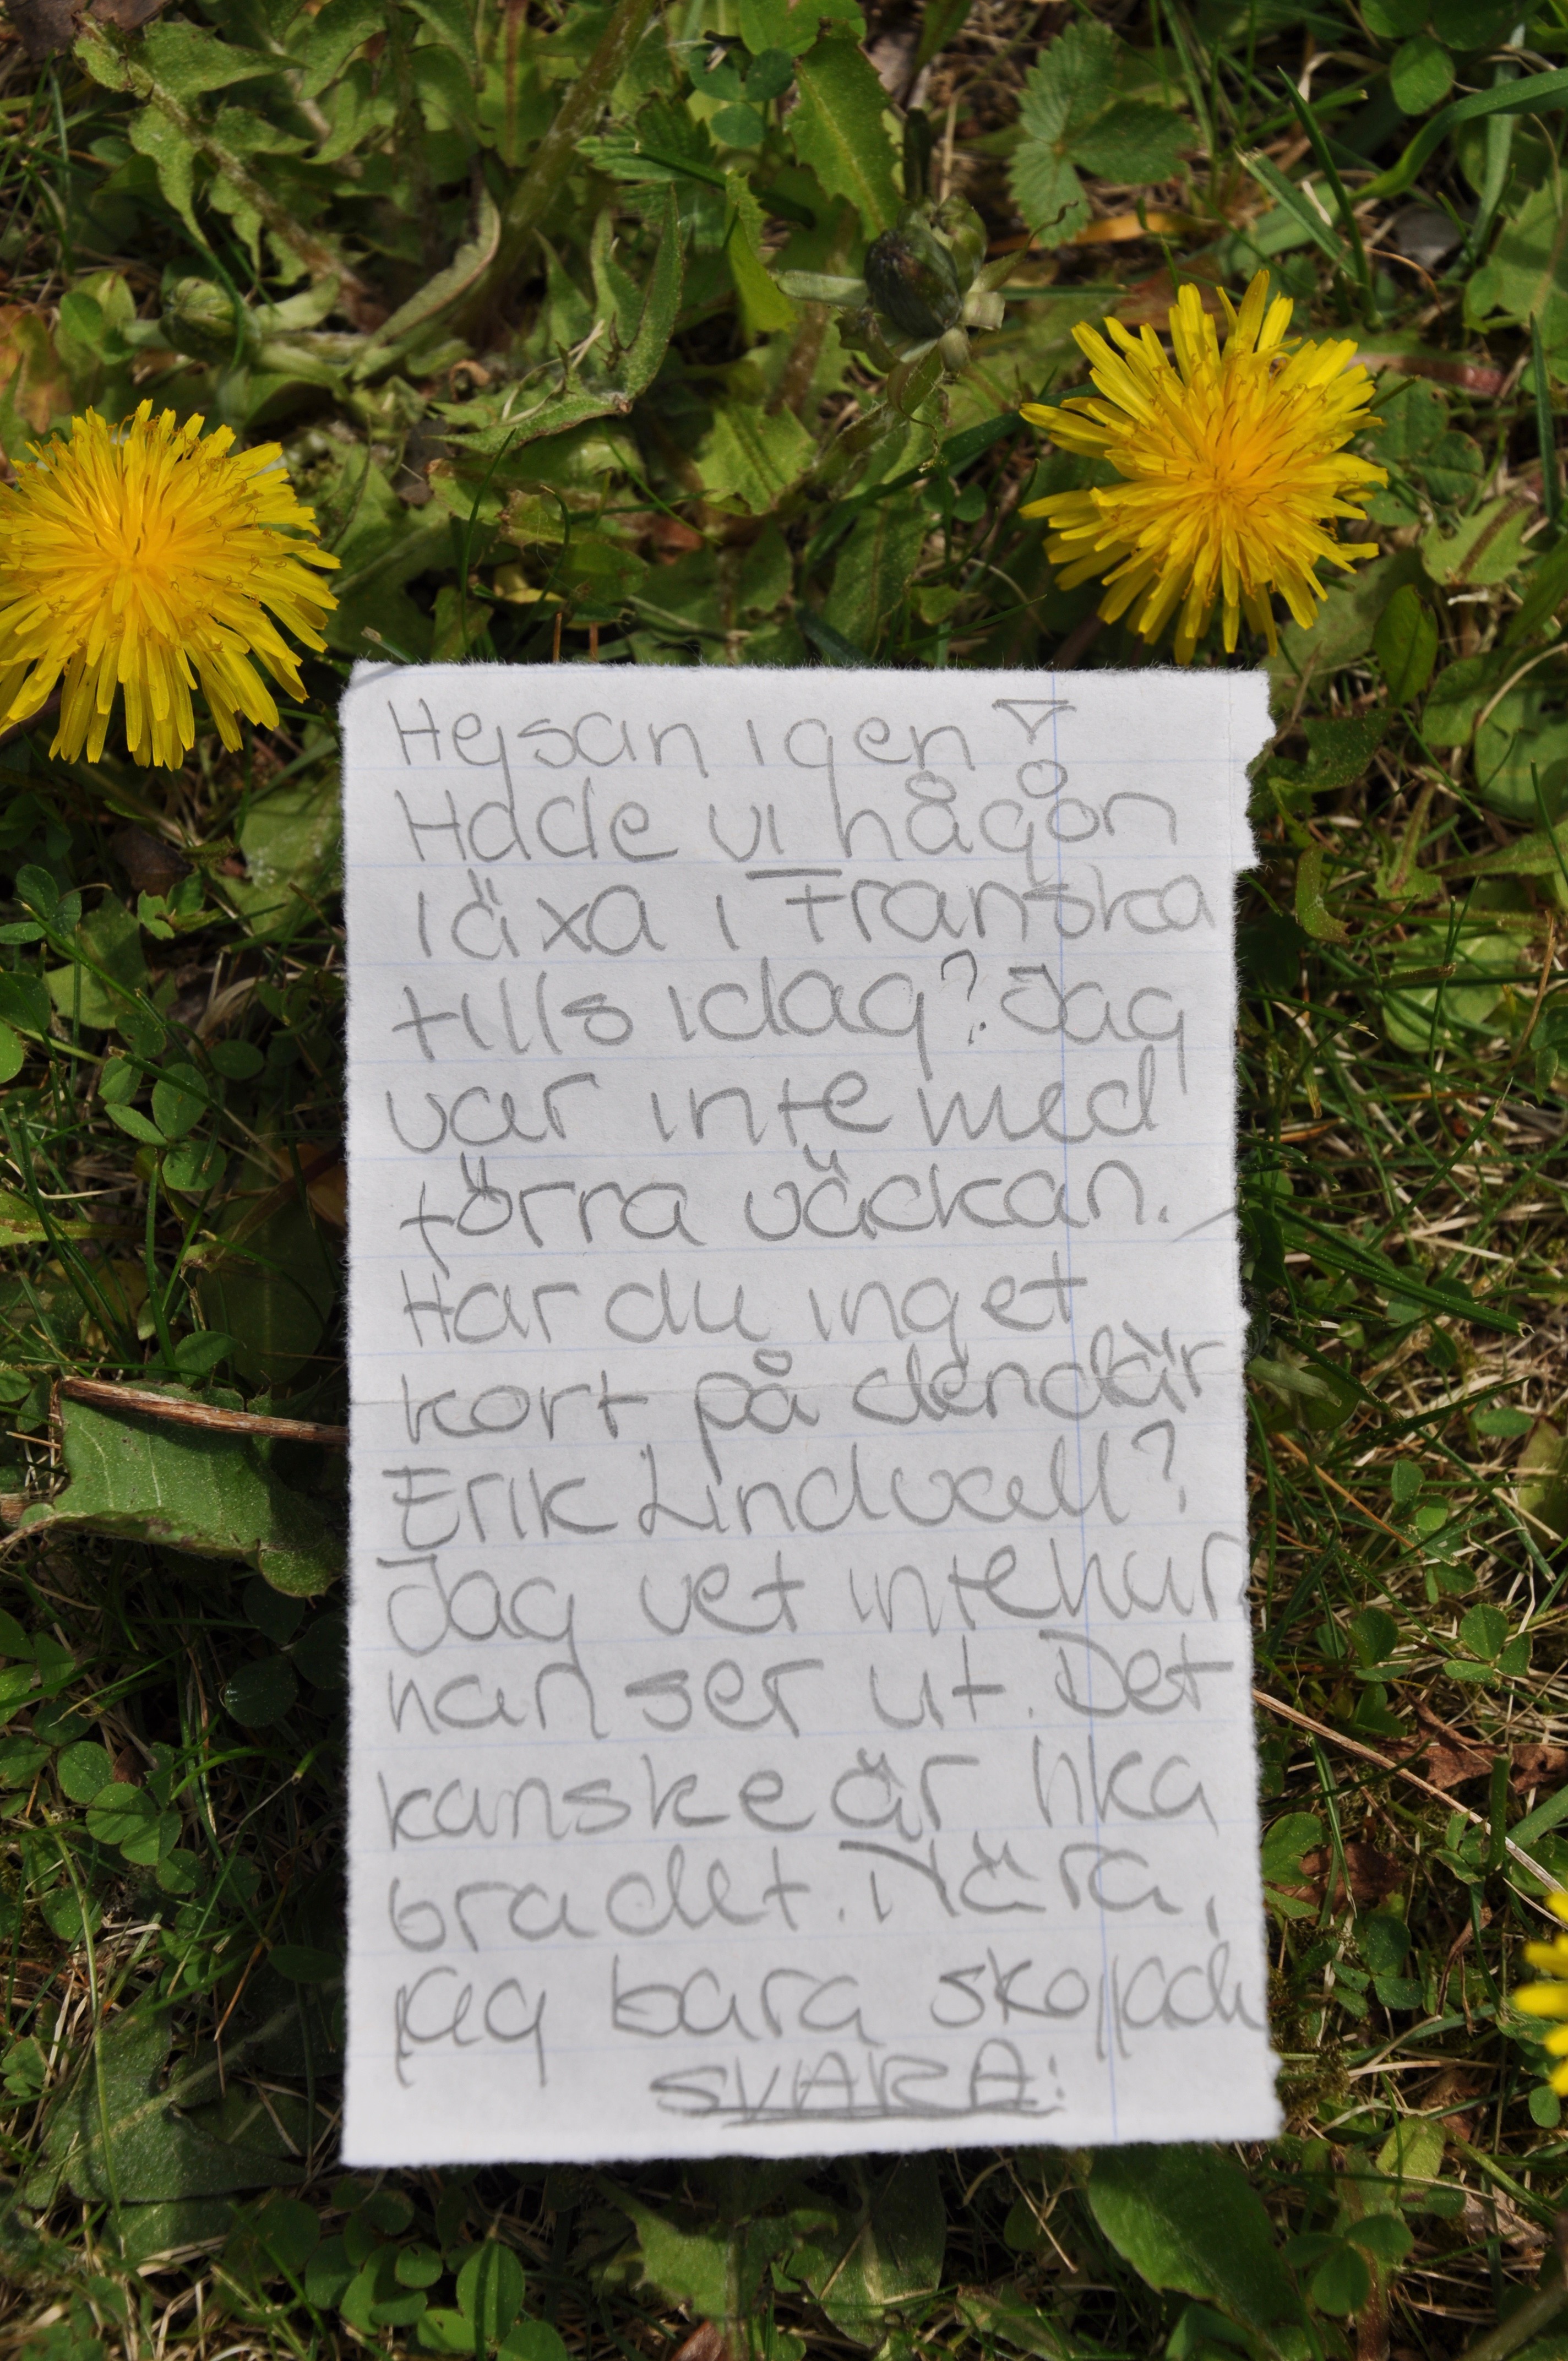 Hejsan igen
Hade vi någon
läxa i Franska
tills idag? Jag
var inte med
förra väckan.
Har du inget
kort på dendär
Erik Lindvall?
Jag vet inte hur
han ser ut. Det
kanske är lika
bra det. Nära,
jag bara skojjade
SVARA: